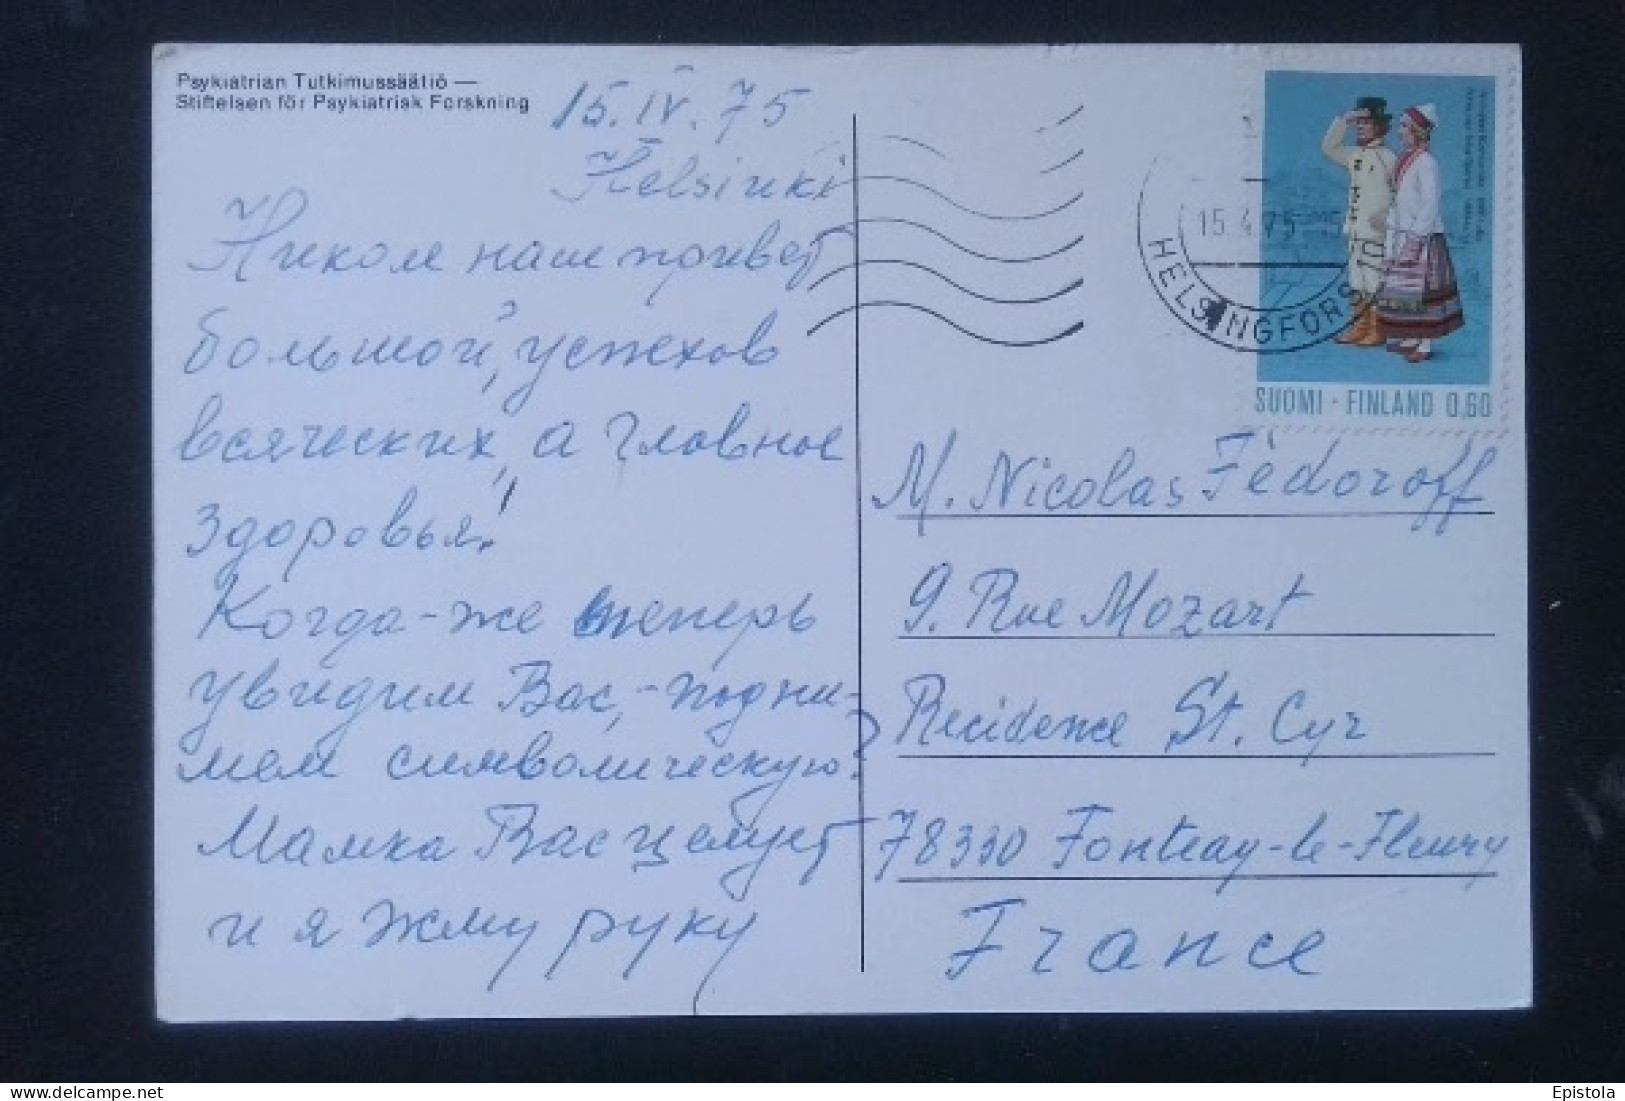 Psykiatrian Tutkimussäätiö —
Stiftelsen för Psykiatrisk Forskning
15. IV. 75
Helsinki
Николе наш привет
большой, успехов
всяческих, а главное
здоровья!
Когда-же теперь
увидим Вас, - подни-
мем символическую?
Мамка Вас целует
и я жму руку
15.4.75-15
HELSINGFORS 10
SUOMI · FINLAND 0,60
M. Nicolas Fèdoroff
9. Rue Mozart
Recidence St. Cyr
78330 Fonteay-le-Fleury
France
Epistola